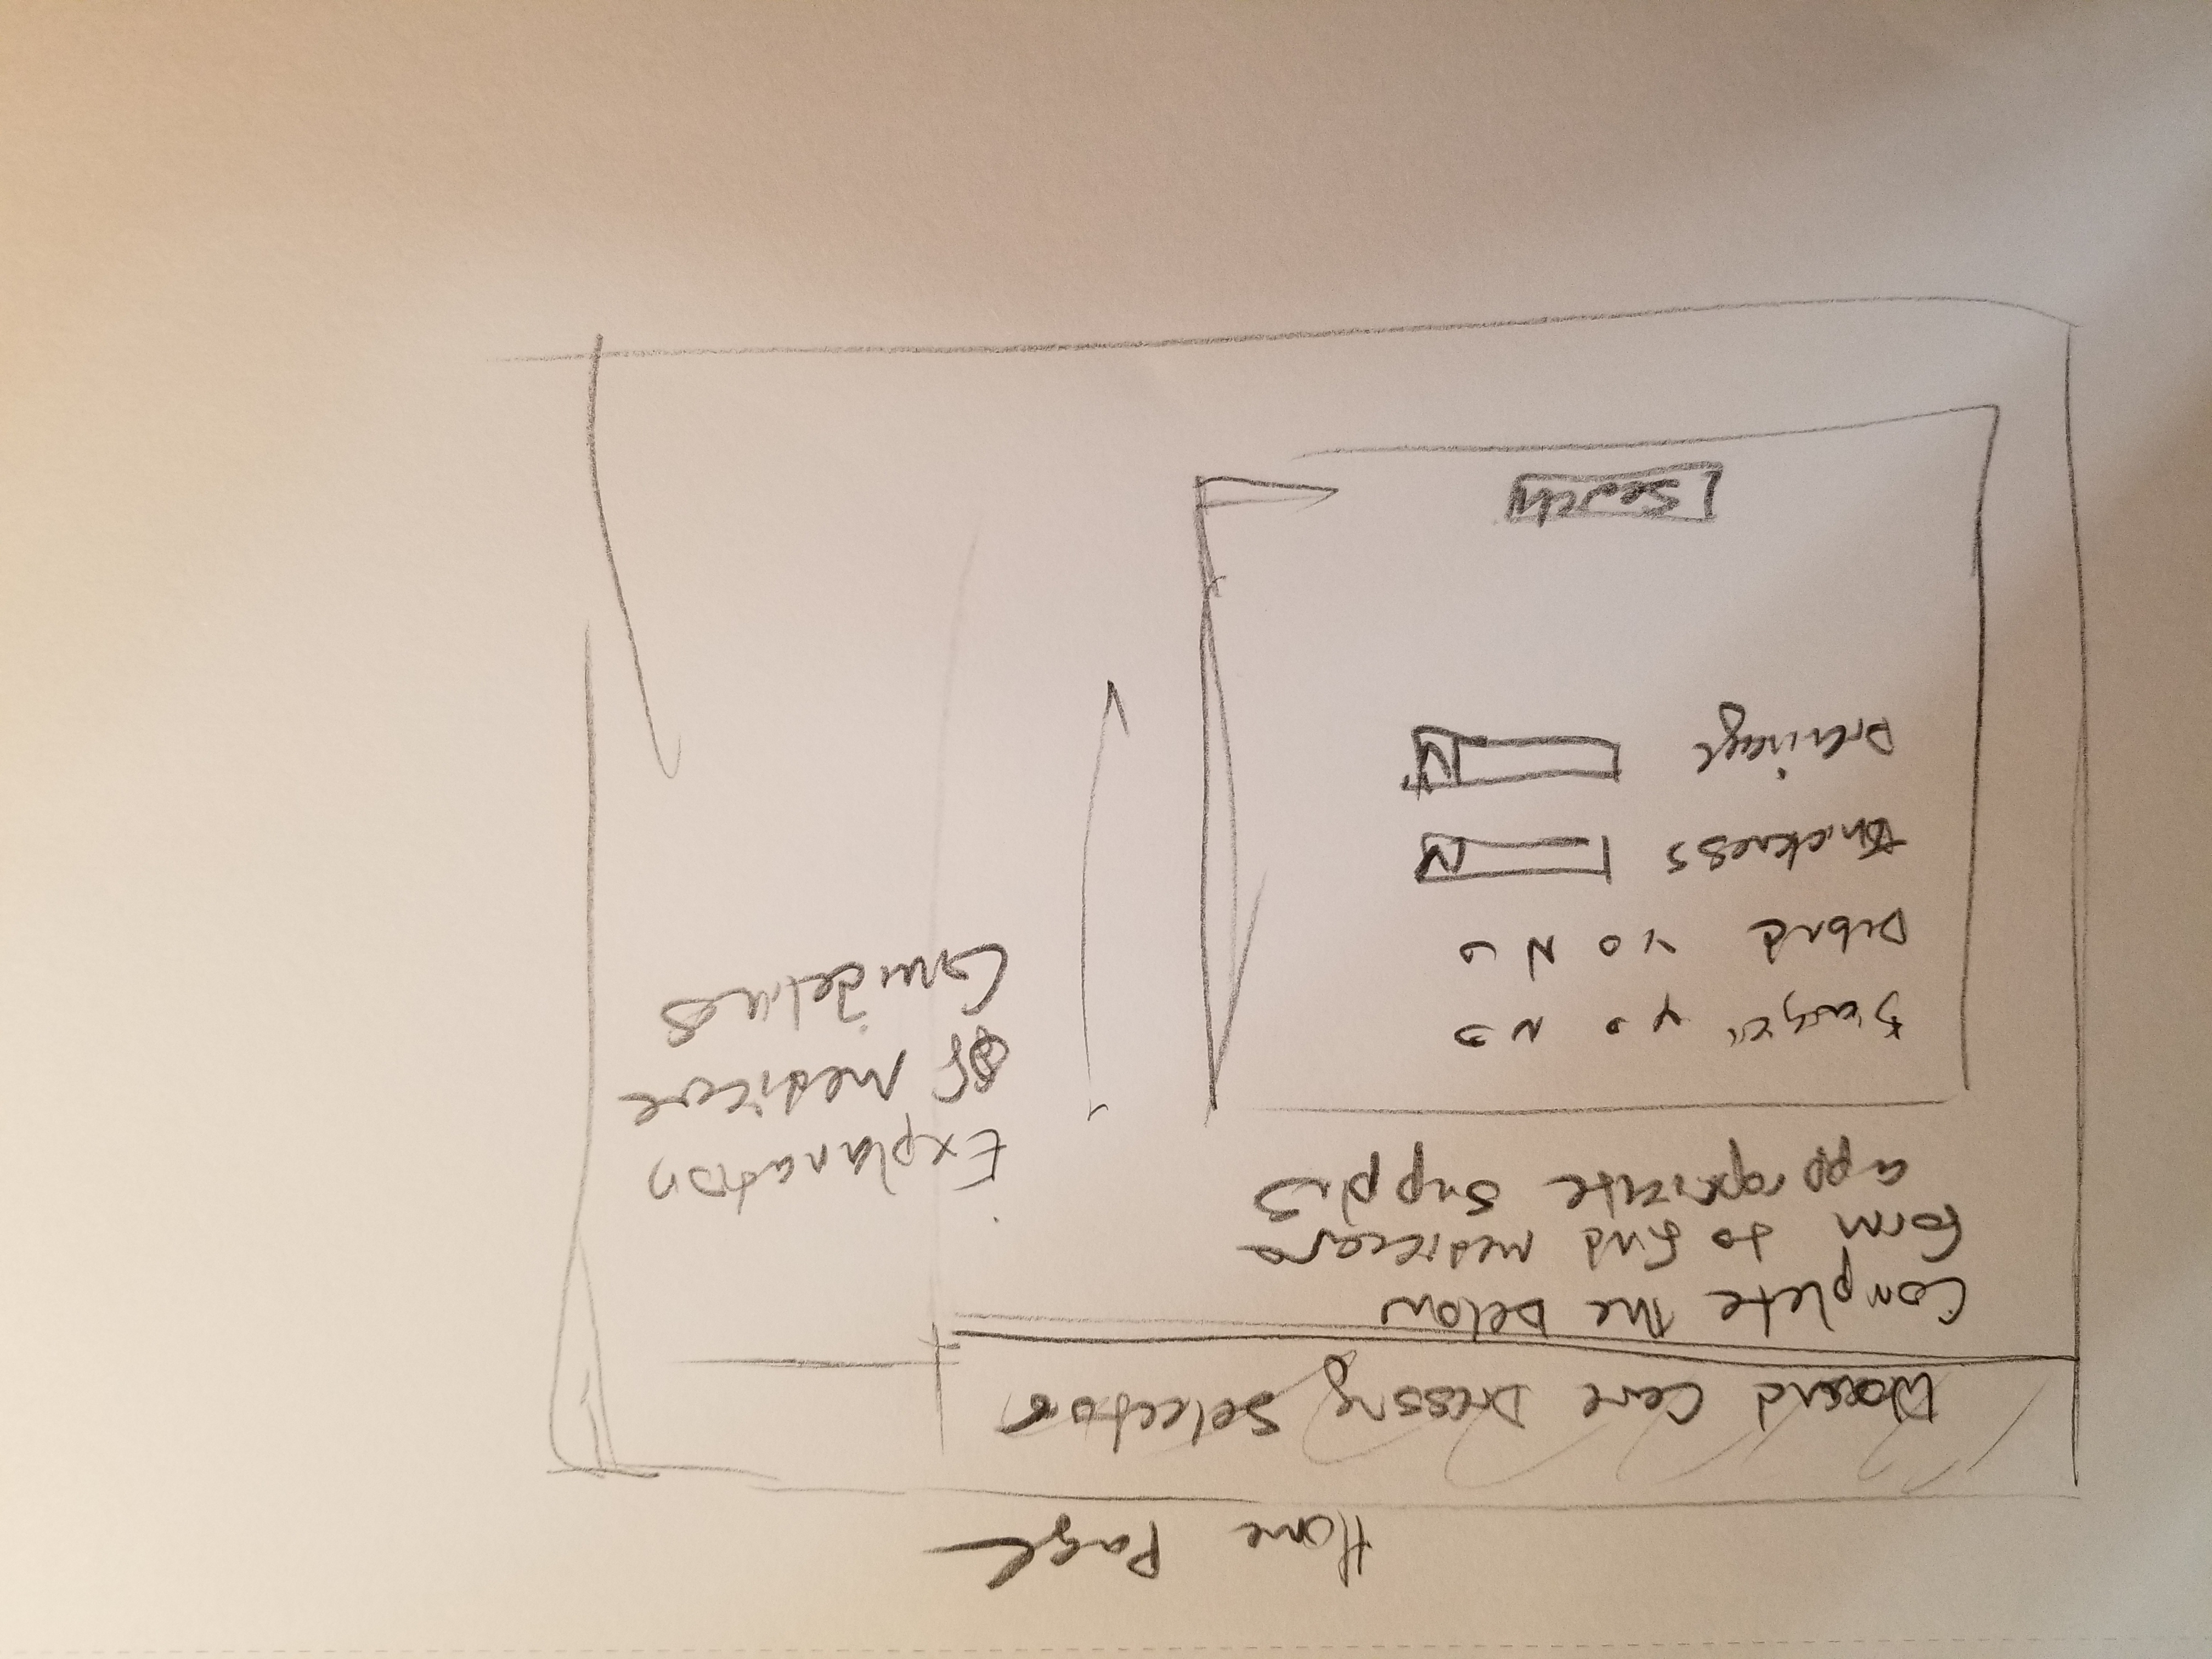 Home Page
Wound Care Dressing Selector
Complete the below
form to find medicare
appropriate supplies
Y N
Debrid Y N
thickness
Drainage
Search
Explanation
of medicare
Guidelines